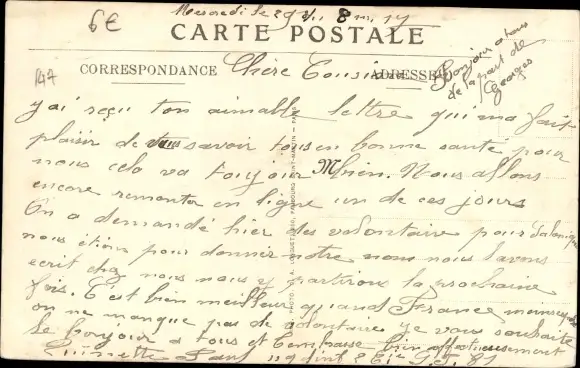 6€
147
Mercredi le 29
CARTE POSTALE
CORRESPONDANCE
ADRESSE
Chère Cousine
Bonjour a tous
de la part de
Georges
j'ai reçu ton aimable lettre qui ma fait
plaisir de vous savoir tous en bonne santé pour
nous cela va toujour bien. Nous allons
encore remonter en ligne un de ces jours
On a demandé hier des volontaire pour Salonique
nous étions pour donner notre nom nous lavons
ecrit chez nous nous y partirons la prochaine
fois. C'est bien meilleur quand France
on ne manque pas de volontaire je vous souhaite
le bonjour a tous et t'embrasse bien affectueusement
Paul
PHOTO
FAUBOURG SAINT-MARTIN - PARIS